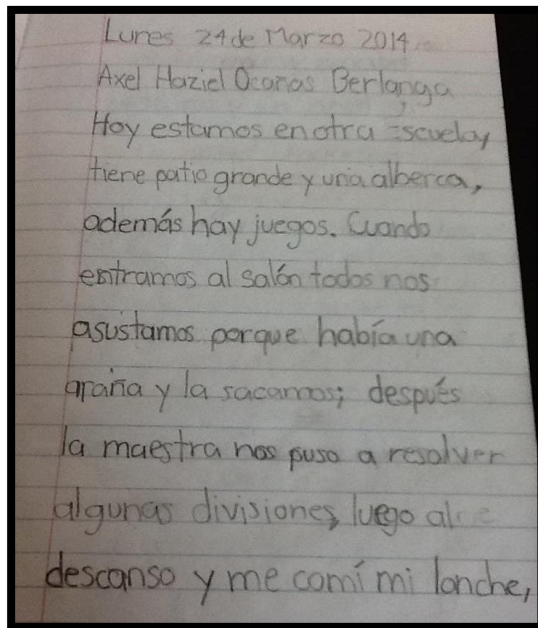 Lunes 24 de Marzo 2014
Axel Haziel Ocañas Berlanga
Hoy estamos en otra Escuela y
tiene patio grande y una alberca,
además hay juegos. Cuando
entramos al salón todos nos
asustamos porque había una
araña y la sacamos; después
la maestra nos puso a resolver
algunas divisiones, luego al
descanso y me comí mi lonche,